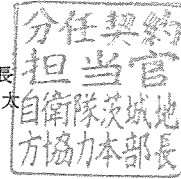 分任契約
担当官
自衛隊茨城地
方協力本部長
長
太